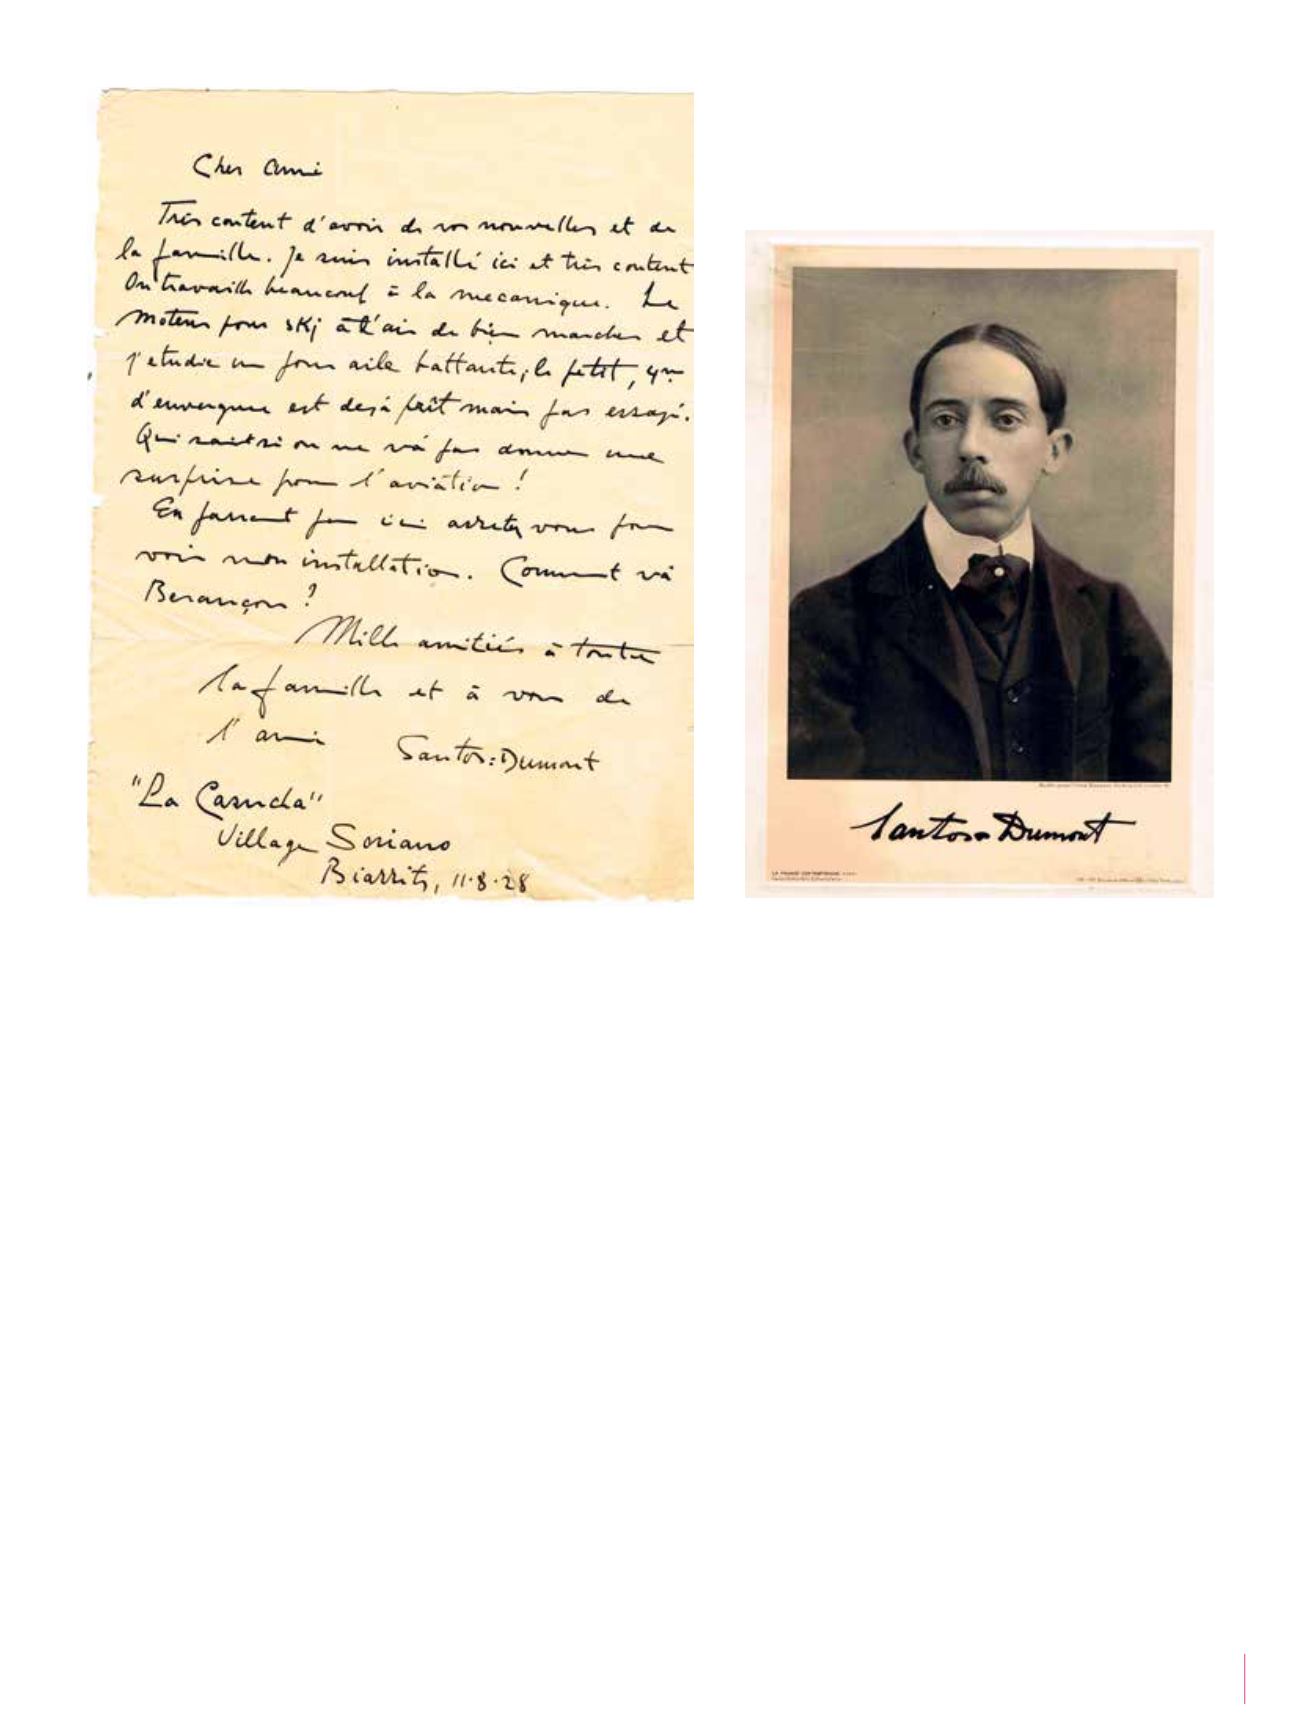 Cher Ami
Très content d'avoir de vos nouvelles et de
la famille. Je suis installé ici et très content
On travaille beaucoup à la mecanique. Le
Moteur pour skj à l'air de bien marcher et
j'etudie un pour aile battante; le petit, 4m
d'envergure est dejà prêt mais pas essayé.
Qui sait si on ne và pas donner une
surprise pour l'aviàtion!
En passant par ici arretez vous pour
voir mon installation. Comment và
Besançon?
Mille amitiés à toute
la famille et à vous de
l'ami Santos=Dumont
"La Casucha"
Village Soriano
Biarritz, 11-8-28
Santos=Dumont
LA FRANCE CONTEMPORAINE